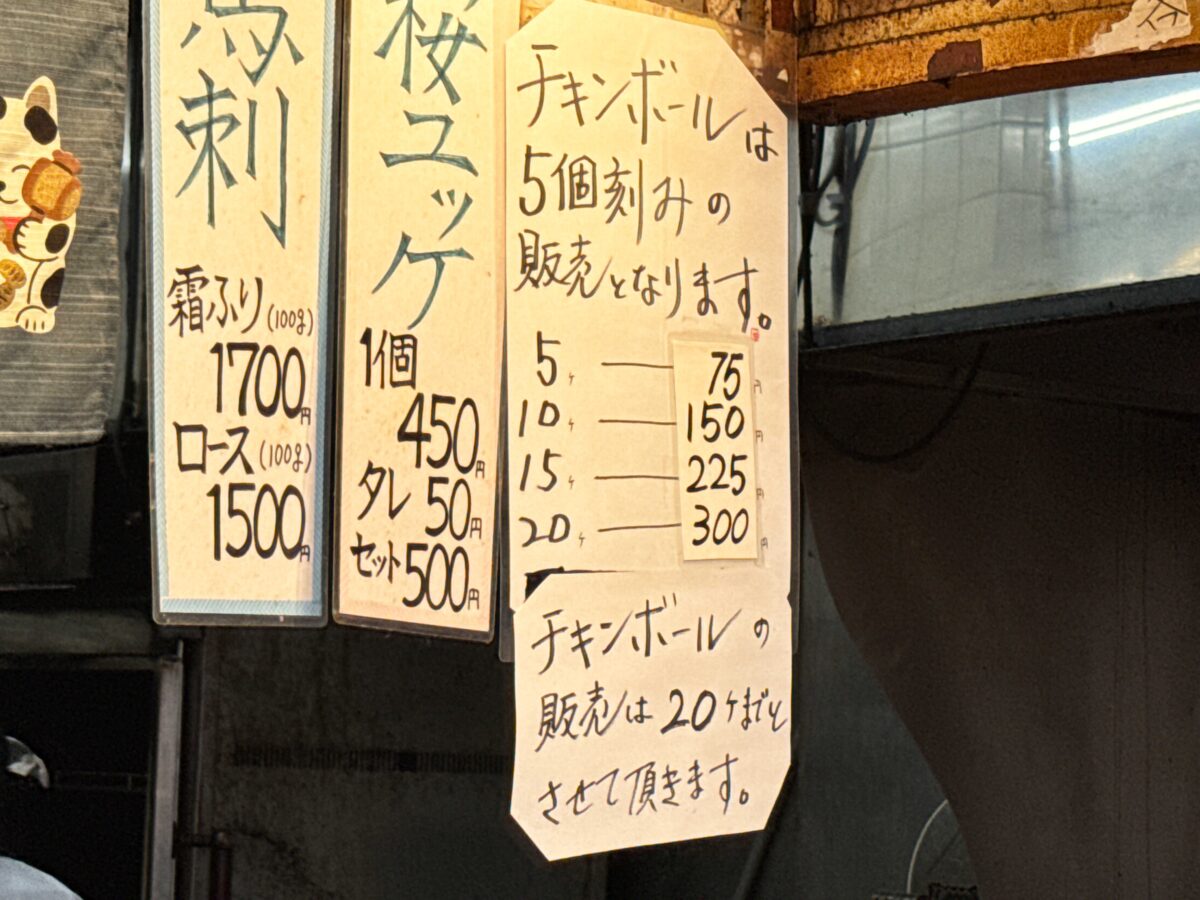 馬刺
霜ふり(100g)
1700円
ロース(100g)
1500円
桜ユッケ
1個
450円
タレ 50円
セット500円
チキンボールは
5個刻みの
販売となります。
5ヶ 75円
10ヶ 150円
15ヶ 225円
20ヶ 300円
チキンボールの
販売は20ケまでと
させて頂きます。